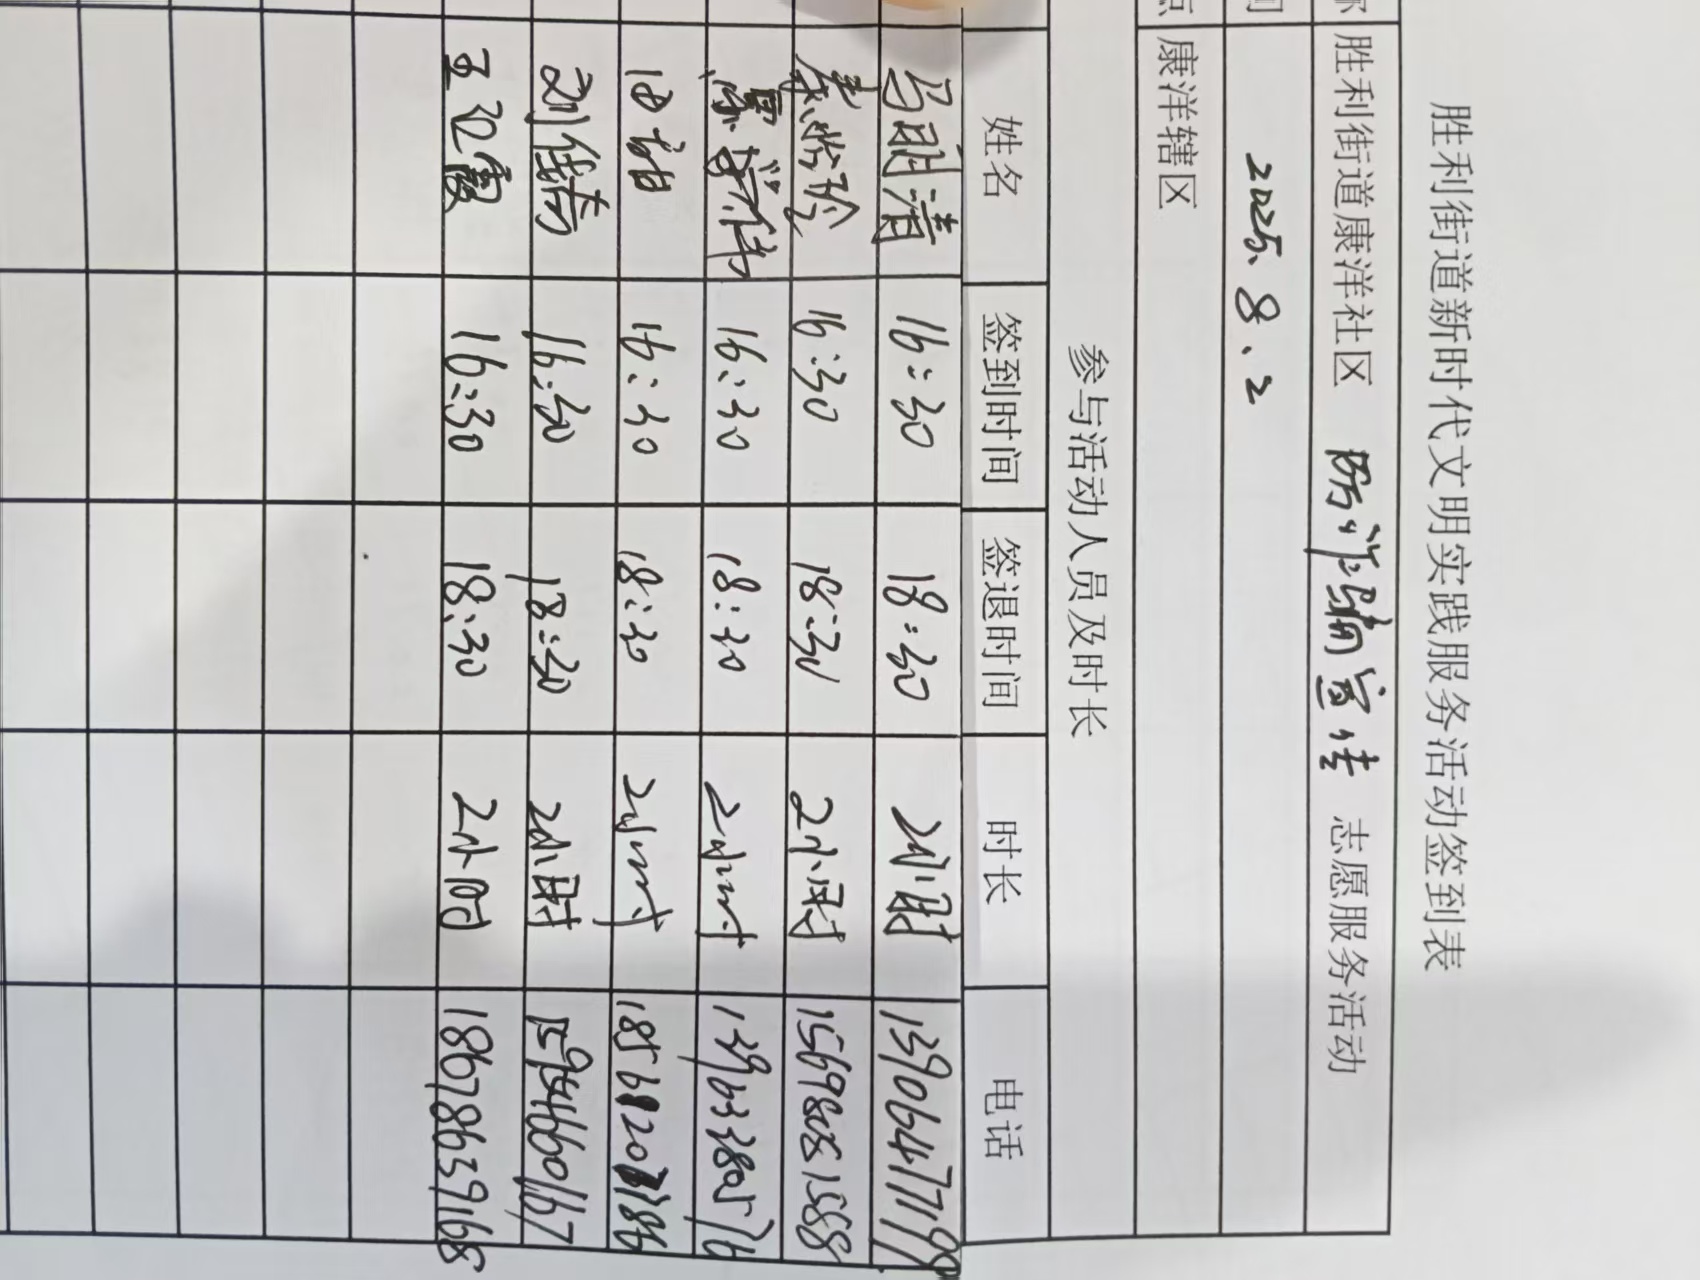 胜利街道新时代文明实践服务活动签到表
胜利街道康洋社区 防诈骗宣传 志愿服务活动
2025.8.2
康洋辖区
参与活动人员及时长
姓名 签到时间 签退时间 时长 电话
马明清 16:30 18:30 2小时 13906477199
16:30 18:30 2小时 15698051588
16:30 18:30 2小时
16:30 18:30 2小时
刘倩 16:30 18:30 2小时
王卫霞 16:30 18:30 2小时 18678639168